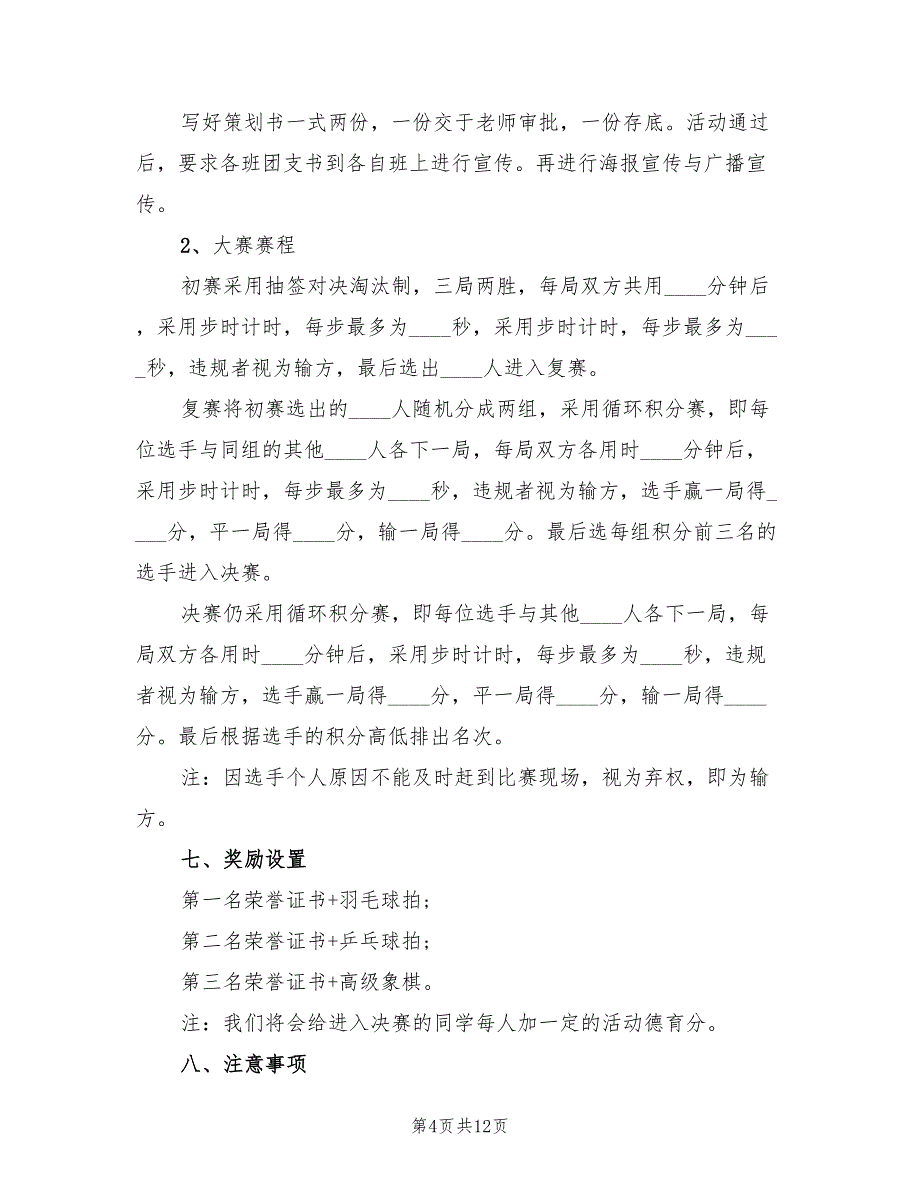 写好策划书一式两份，一份交于老师审批，一份存底。活动通过
后，要求各班团支书到各自班上进行宣传。再进行海报宣传与广播宣
传。
2、大赛赛程
初赛采用抽签对决淘汰制，三局两胜，每局双方共用____分钟后
，采用步时计时，每步最多为____秒，采用步时计时，每步最多为___
_秒，违规者视为输方，最后选出____人进入复赛。
复赛将初赛选出的____人随机分成两组，采用循环积分赛，即每
位选手与同组的其他____人各下一局，每局双方各用时____分钟后，
采用步时计时，每步最多为____秒，违规者视为输方，选手赢一局得_
___分，平一局得____分，输一局得____分。最后选每组积分前三名的
选手进入决赛。
决赛仍采用循环积分赛，即每位选手与其他____人各下一局，每
局双方各用时____分钟后，采用步时计时，每步最多为____秒，违规
者视为输方，选手赢一局得____分，平一局得____分，输一局得____
分。最后根据选手的积分高低排出名次。
注：因选手个人原因不能及时赶到比赛现场，视为弃权，即为输
方。
七、奖励设置
第一名荣誉证书+羽毛球拍;
第二名荣誉证书+乒乓球拍;
第三名荣誉证书+高级象棋。
注：我们将会给进入决赛的同学每人加一定的活动德育分。
八、注意事项
第4页共12页